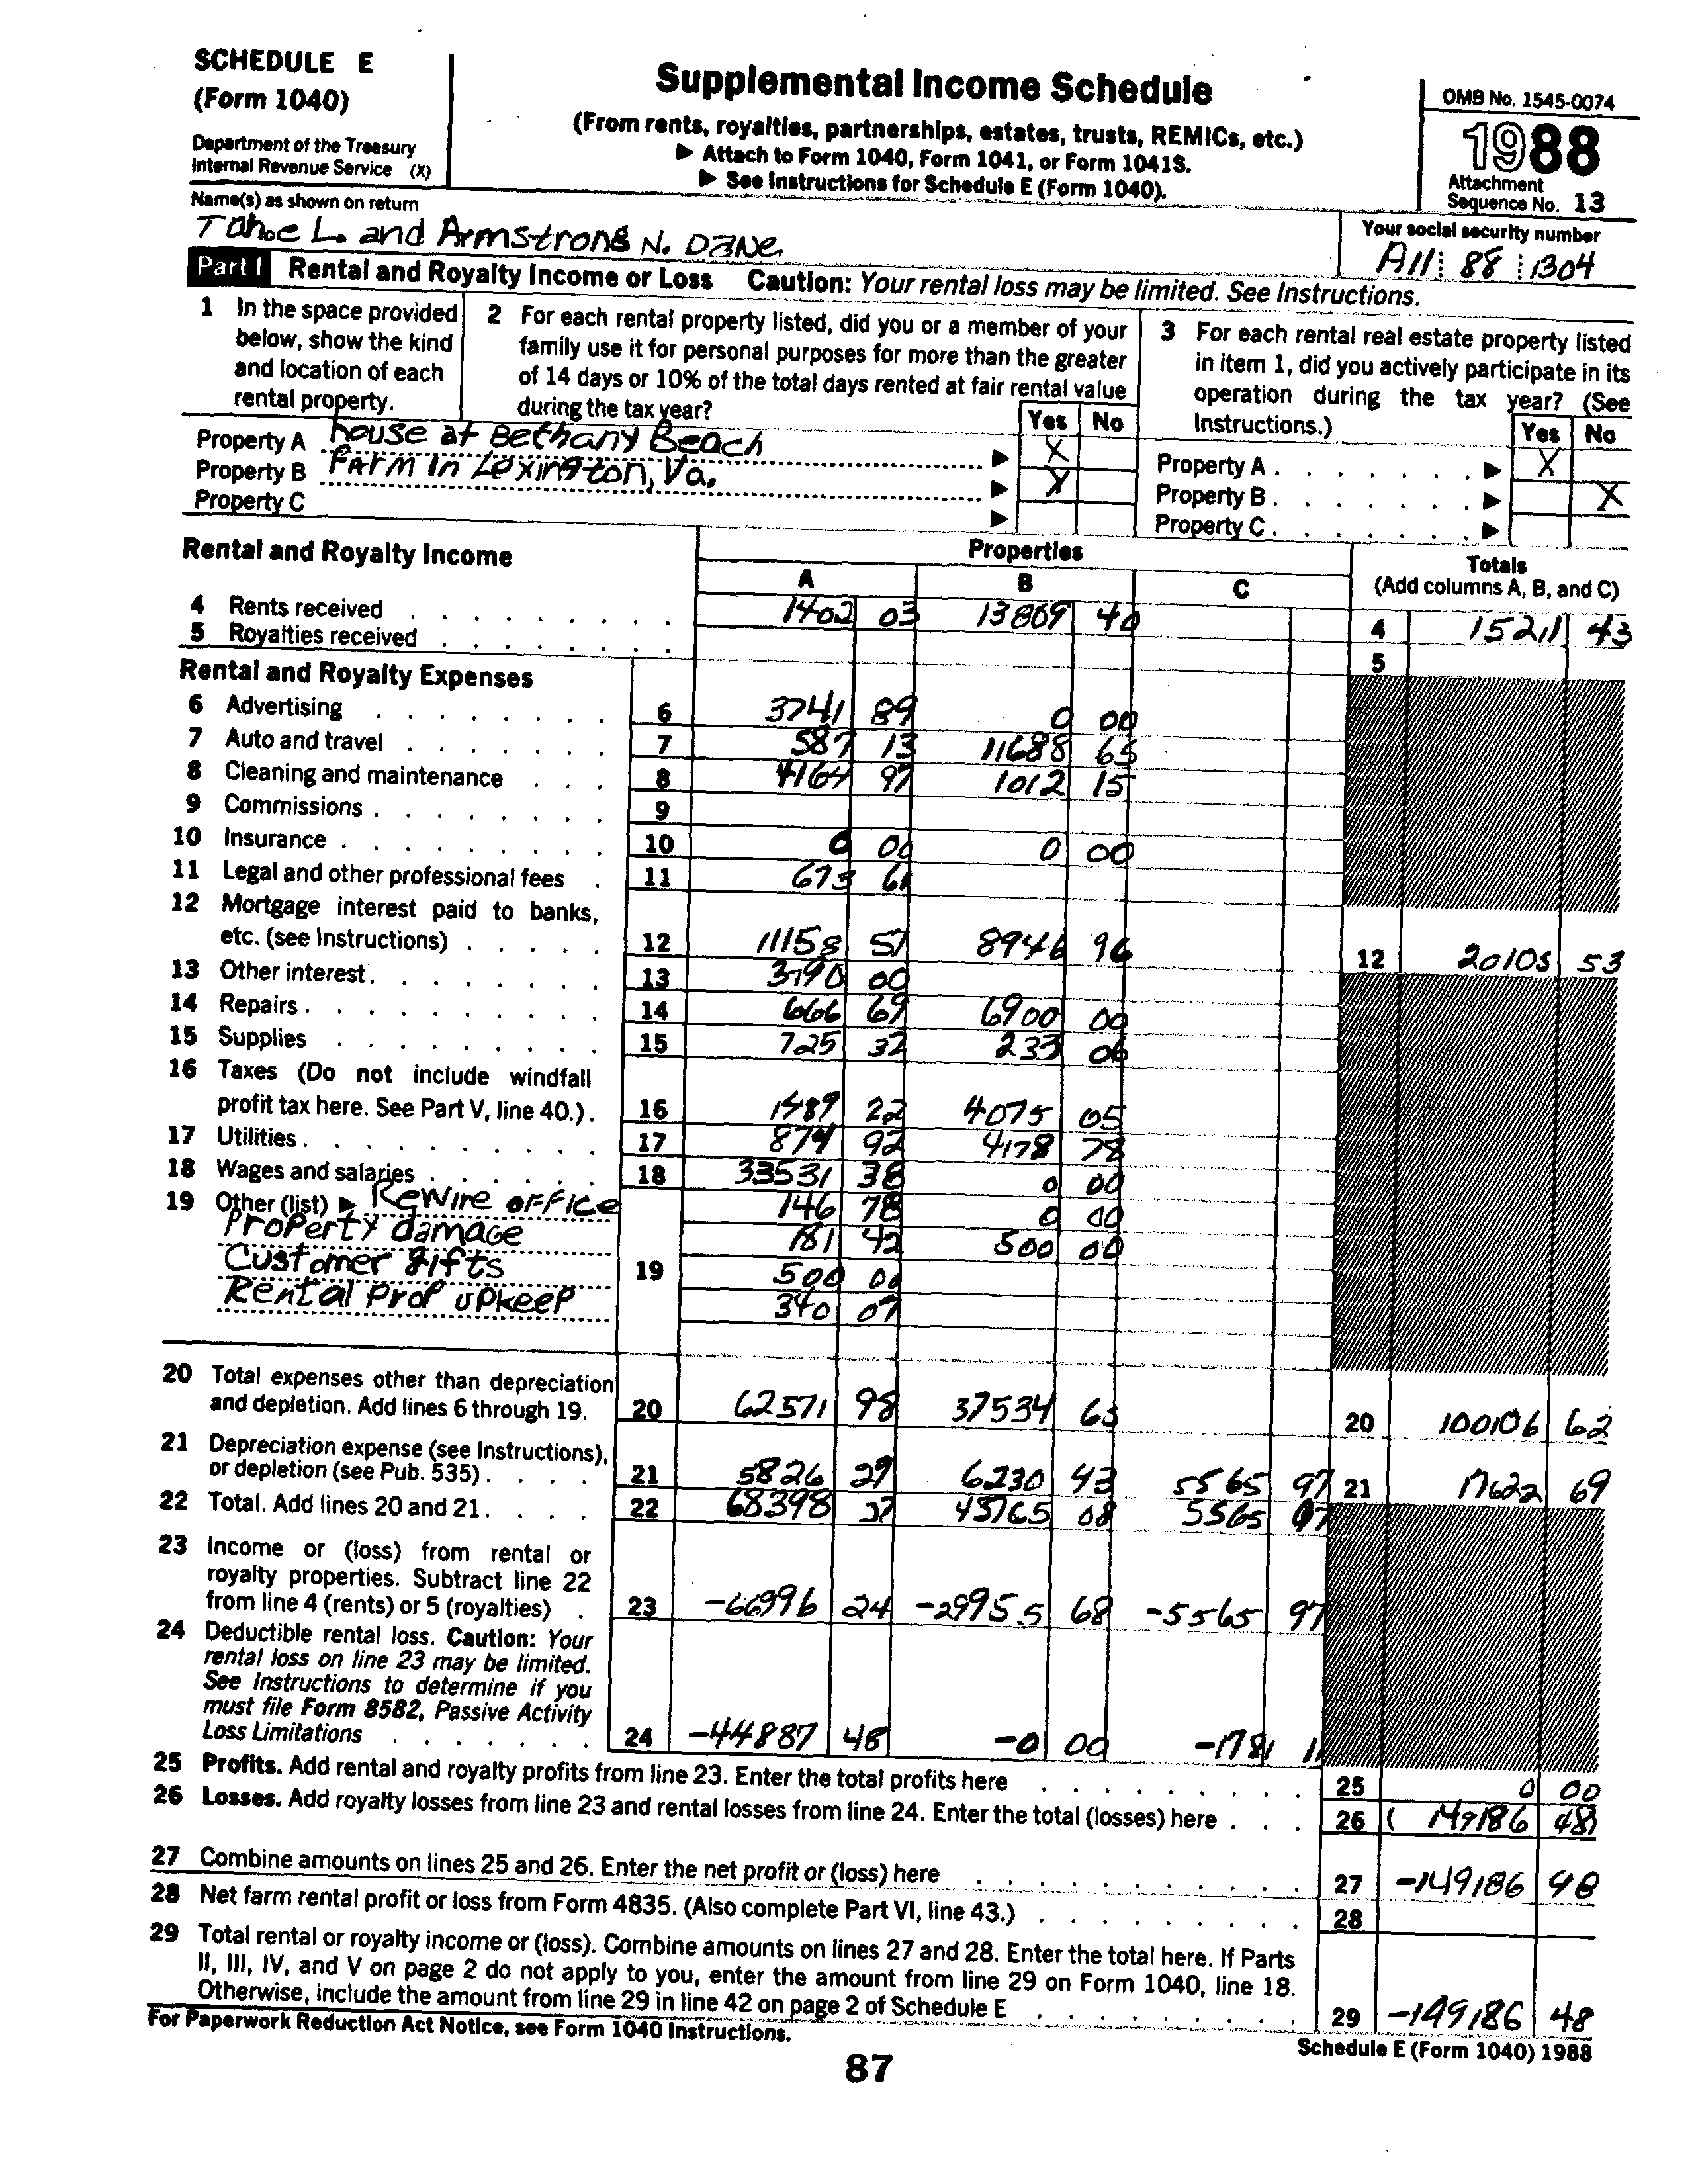 SCHEDULE E
(Form 1040)
Department of the Treasury
Internal Revenue Service (X)
Supplemental Income Schedule
(From rents, royalties, partnerships, estates, trusts, REMICs, etc.)
▶ Attach to Form 1040, Form 1041, or Form 1041S.
▶ See Instructions for Schedule E (Form 1040).
OMB No. 1545-0074
1988
Attachment
Sequence No. 13
Name(s) as shown on return
Tahoe L. and Armstrong N. Dane
Your social security number
A11 88 1304
Part I Rental and Royalty Income or Loss Caution: Your rental loss may be limited. See Instructions.
1 In the space provided
below, show the kind
and location of each
rental property.
2 For each rental property listed, did you or a member of your
family use it for personal purposes for more than the greater
of 14 days or 10% of the total days rented at fair rental value
during the tax year?
Yes No
3 For each rental real estate property listed
in item 1, did you actively participate in its
operation during the tax year? (See
Instructions.)
Yes No
Property A house at Bethany Beach ▶ X
Property B Farm in Lexington, Va. ▶ X
Property C ▶
Property A ▶ X
Property B ▶ X
Property C ▶
Rental and Royalty Income
Properties
A B C
Totals
(Add columns A, B, and C)
4 Rents received 1402 03 13809 40 4 15211 43
5 Royalties received 5
Rental and Royalty Expenses
6 Advertising 6 3741 89 0 00
7 Auto and travel 7 587 13 11688 65
8 Cleaning and maintenance 8 4164 97 1012 15
9 Commissions 9
10 Insurance 10 0 00 0 00
11 Legal and other professional fees 11 673 61
12 Mortgage interest paid to banks,
etc. (see Instructions) 12 11158 57 8946 96 12 20105 53
13 Other interest 13 3790 00
14 Repairs 14 666 69 6900 00
15 Supplies 15 725 32 233 06
16 Taxes (Do not include windfall
profit tax here. See Part V, line 40.) 16 1489 22 4075 05
17 Utilities 17 874 92 4178 78
18 Wages and salaries 18 33531 38 0 00
19 Other (list) ▶ Rewire office 146 78 0 00
Property damage 181 42 500 00
Customer gifts 19 500 00
Rental Prop upkeep 340 07
20 Total expenses other than depreciation
and depletion. Add lines 6 through 19. 20 62571 98 37534 65 20 100106 62
21 Depreciation expense (see Instructions),
or depletion (see Pub. 535) 21 5826 29 6230 43 5565 97 21 17622 69
22 Total. Add lines 20 and 21 22 68398 27 43765 08 5565 97
23 Income or (loss) from rental or
royalty properties. Subtract line 22
from line 4 (rents) or 5 (royalties) 23 -66996 24 -29955 68 -5565 97
24 Deductible rental loss. Caution: Your
rental loss on line 23 may be limited.
See Instructions to determine if you
must file Form 8582, Passive Activity
Loss Limitations 24 -44887 48 -0 00 -1781 11
25 Profits. Add rental and royalty profits from line 23. Enter the total profits here 25 0 00
26 Losses. Add royalty losses from line 23 and rental losses from line 24. Enter the total (losses) here 26 ( 149186 48)
27 Combine amounts on lines 25 and 26. Enter the net profit or (loss) here 27 -149186 48
28 Net farm rental profit or loss from Form 4835. (Also complete Part VI, line 43.) 28
29 Total rental or royalty income or (loss). Combine amounts on lines 27 and 28. Enter the total here. If Parts
II, III, IV, and V on page 2 do not apply to you, enter the amount from line 29 on Form 1040, line 18.
Otherwise, include the amount from line 29 in line 42 on page 2 of Schedule E 29 -149186 48
For Paperwork Reduction Act Notice, see Form 1040 Instructions.
Schedule E (Form 1040) 1988
87